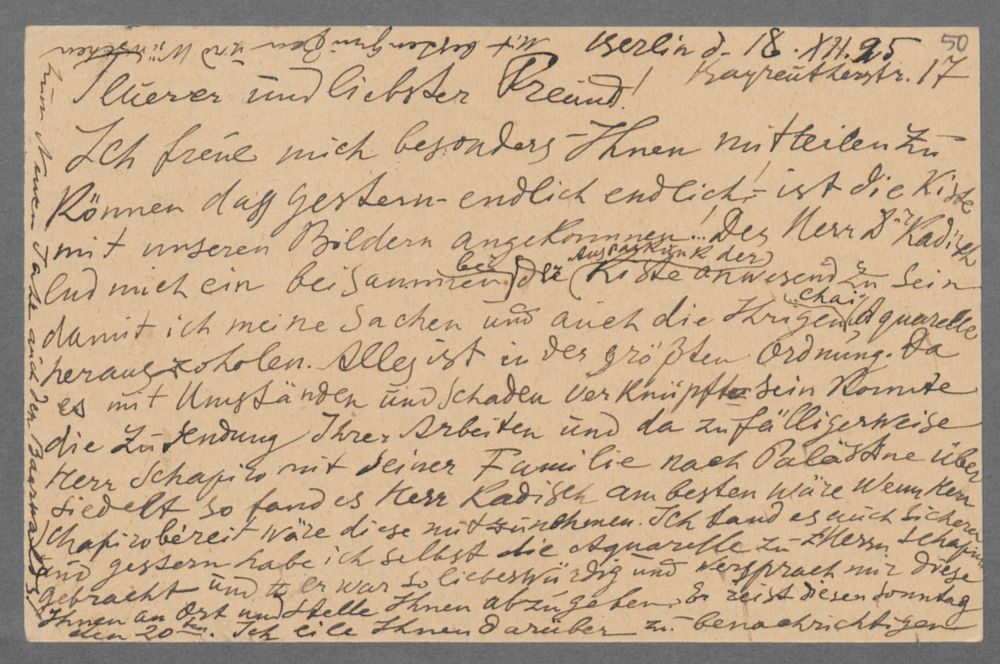 50
Berlin d. 18. XII. 25
Bayreutherstr. 17
Teuerer und liebster Freund!
Ich freue mich besonders Ihnen mitteilen zu
können dass gestern - endlich endlich! - ist die Kiste
mit unseren Bildern angekommen..! Der Herr Dr Kadisch
lud mich ein bei
bei der Auspackung der
Kiste anwesend zu sein
damit ich meine Sachen und auch die Ihrigen "chai" Aquarelle
herauszoholen. Alles ist in der größten Ordnung. Da
es mit Umständen und Schaden verknüpft sein konnte
die Zusendung Ihrer Arbeiten und da zufälligerweise
Herr Schapiro mit seiner Familie nach Palästine über
siedelt so fand es Herr Kadisch am besten wäre wenn Herr
Schapiro bereit wäre diese mitzunehmen. Ich fand es auch sicherer
und gestern habe ich selbst die Aquarelle zu Herrn Schapiro
gebracht und er war so liebeswürdig und versprach mir diese
Ihnen an Ort und Stelle Ihnen abzugeben. Er reist diesen Sonntag
den 20ten. Ich eile Ihnen darüber zu benachrichtigen
Mit besten Grüßen und Wünschen